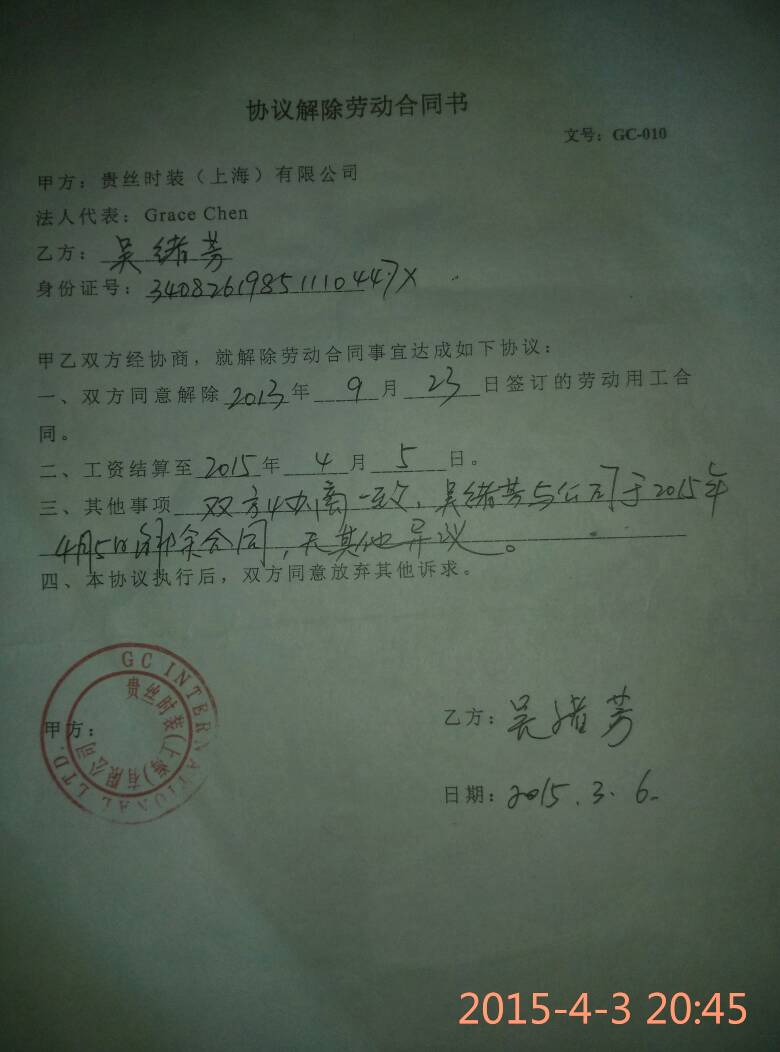 协议解除劳动合同书
文号：GC-010
甲方：贵丝时装（上海）有限公司
法人代表：Grace Chen
乙方：吴绪芳
身份证号：34082619851110447X
甲乙双方经协商，就解除劳动合同事宜达成如下协议：
一、双方同意解除2013年9月23日签订的劳动用工合
同。
二、工资结算至2015年4月5日。
三、其他事项 双方协商一致，吴绪芳与公司于2015年
4月5日解除合同，无其他异议。
四、本协议执行后，双方同意放弃其他诉求。
甲方：
GC INTERNATIONAL LTD.
贵丝时装(上海)有限公司
乙方：吴绪芳
日期：2015.3.6.
2015-4-3 20:45